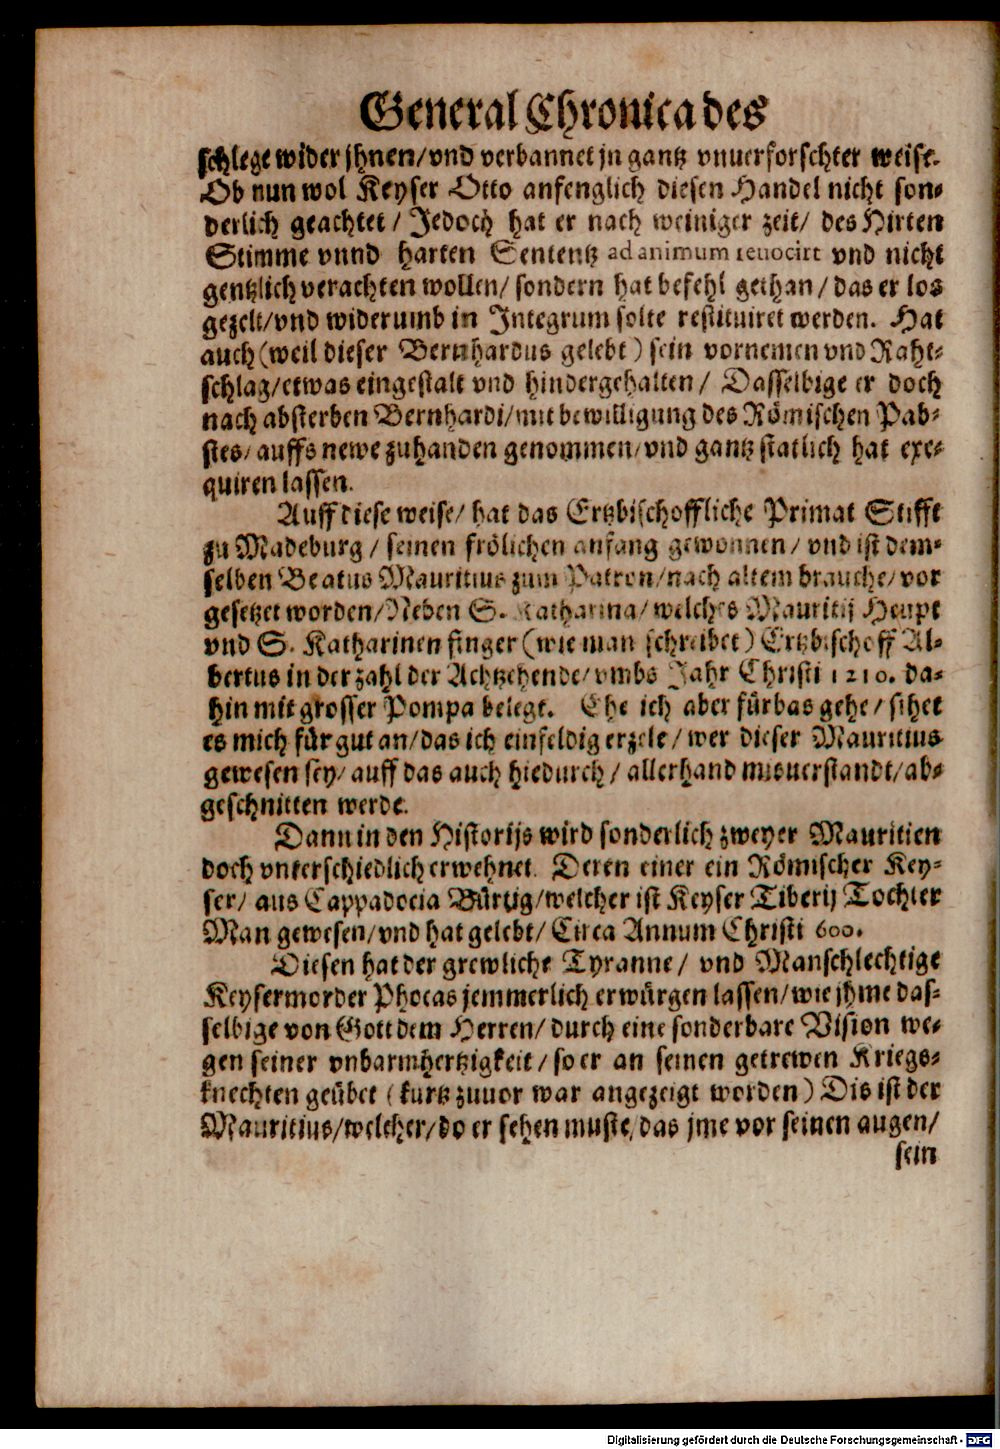 General Chronica des
schlege wider jhnen/vnd verbannet jn gantz vnuerforschter weise.
Ob nun wol Keyser Otto anfenglich diesen Handel nicht son-
derlich geachtet / Jedoch hat er nach weiniger zeit/ des Hirten
Stimme vnnd harten Sententz ad animum reuocirt vnd nicht
gentzlich verachten wollen/ sondern hat befehl gethan/ das er los
gezelt/vnd widerumb in Integrum solte restituiret werden. Hat
auch (weil dieser Bernhardus gelebt) sein vornemen vnd Raht-
schlag/etwas eingestalt vnd hindergehalten/ Dasselbige er doch
nach absterben Bernhardi/mit bewilligung des Römischen Pab-
stes/ auffs newe zuhanden genommen/vnd gantz statlich hat exe-
quiren lassen.
Auff diese weise/ hat das Ertzbischoffliche Primat Stifft
zu Madeburg / seinen frölichen anfang gewonnen/ vnd ist dem-
selben Beatus Mauritius zum Patron/nach altem brauche/vor
gesetzet worden/Neben S. Katharina/welches Mauritij Heupt
vnd S. Katharinen finger (wie man schreibet) Ertzbischoff Al-
bertus in der zahl der Achtzehende/vmbs Jahr Christi 1210. da-
hin mit grosser Pompa belegt. Ehe ich aber fürbas gehe/ sihet
es mich für gut an/das ich einfeldig erzele/ wer dieser Mauritius
gewesen sey/ auff das auch hiedurch/ allerhand misuerstandt/ab-
geschnitten werde.
Dann in den Historijs wird sonderlich zweyer Mauritien
doch vnterschiedlich erwehnet. Deren einer ein Römischer Key-
ser/ aus Cappadocia Bürtig/welcher ist Keyser Tiberij Tochter
Man gewesen/vnd hat gelebt/ Circa Annum Christi 600.
Diesen hat der grewliche Tyranne/ vnd Manschlechtige
Keysermorder Phocas jemmerlich erwürgen lassen/wie jhme das-
selbige von Gott dem Herren/ durch eine sonderbare Vision we-
gen seiner vnbarmhertzigkeit/so er an seinen getrewen Kriegs-
knechten geübet (kurtz zuuor war angezeigt worden) Dis ist der
Mauritius/welcher/do er sehen muste/das jme vor seinen augen/
sein
Digitalisierung gefördert durch die Deutsche Forschungsgemeinschaft - DFG